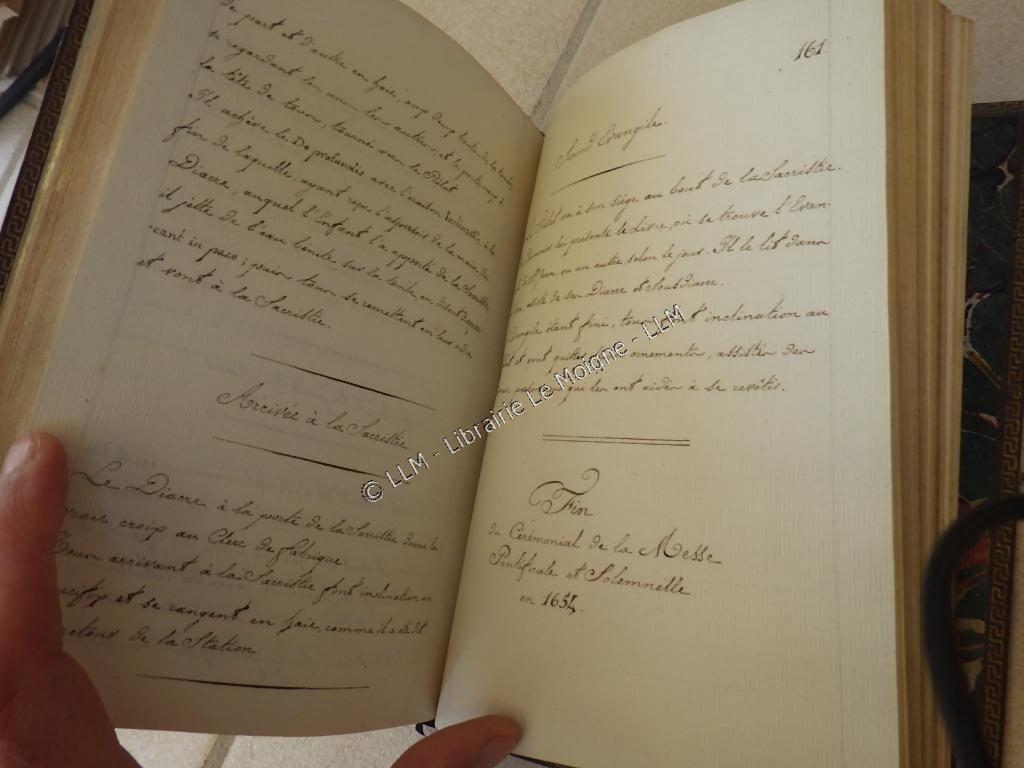 de part et d'autre en haie;
se regardant les uns les autres, et le porte-croix à
la tête de tous tourné vers le Prélat.
Il achève le De profundis avec l'oraison Inclina, à la
fin de laquelle, ayant reçu l'aspersoir de la main du
Diacre, auquel l'Enfant l'a apporté de la Sacristie,
il jette de l'eau bénite sur la tombe, en disant Requies-
-cant in pace; puis tous se remettent en leur ordre,
et vont à la Sacristie.
Arrivée à la Sacristie
Le Diacre à la porte de la Sacristie donne la
vraie croix au Clerc de fabrique.
Tous arrivant à la Sacristie font inclination au
crucifix et se rangent en haie, comme il a été dit
retour de la Station.
161
Second Evangile.
Prélat va à son siège au bout de la Sacristie.
lui présente le Livre, où se trouve l'Evan-
Jean, ou un autre, selon le jour. Il le lit dans
assisté de ses Diacre et SousDiacre.
Evangile étant fini, tous font inclination au
et vont quitter ornements, assistés des
qui les ont aidés à se revêtir.
Fin
du Cérémonial de la Messe
Pontificale et Solemnelle
en 1657.
© LLM - Librairie Le Moigne - LLM